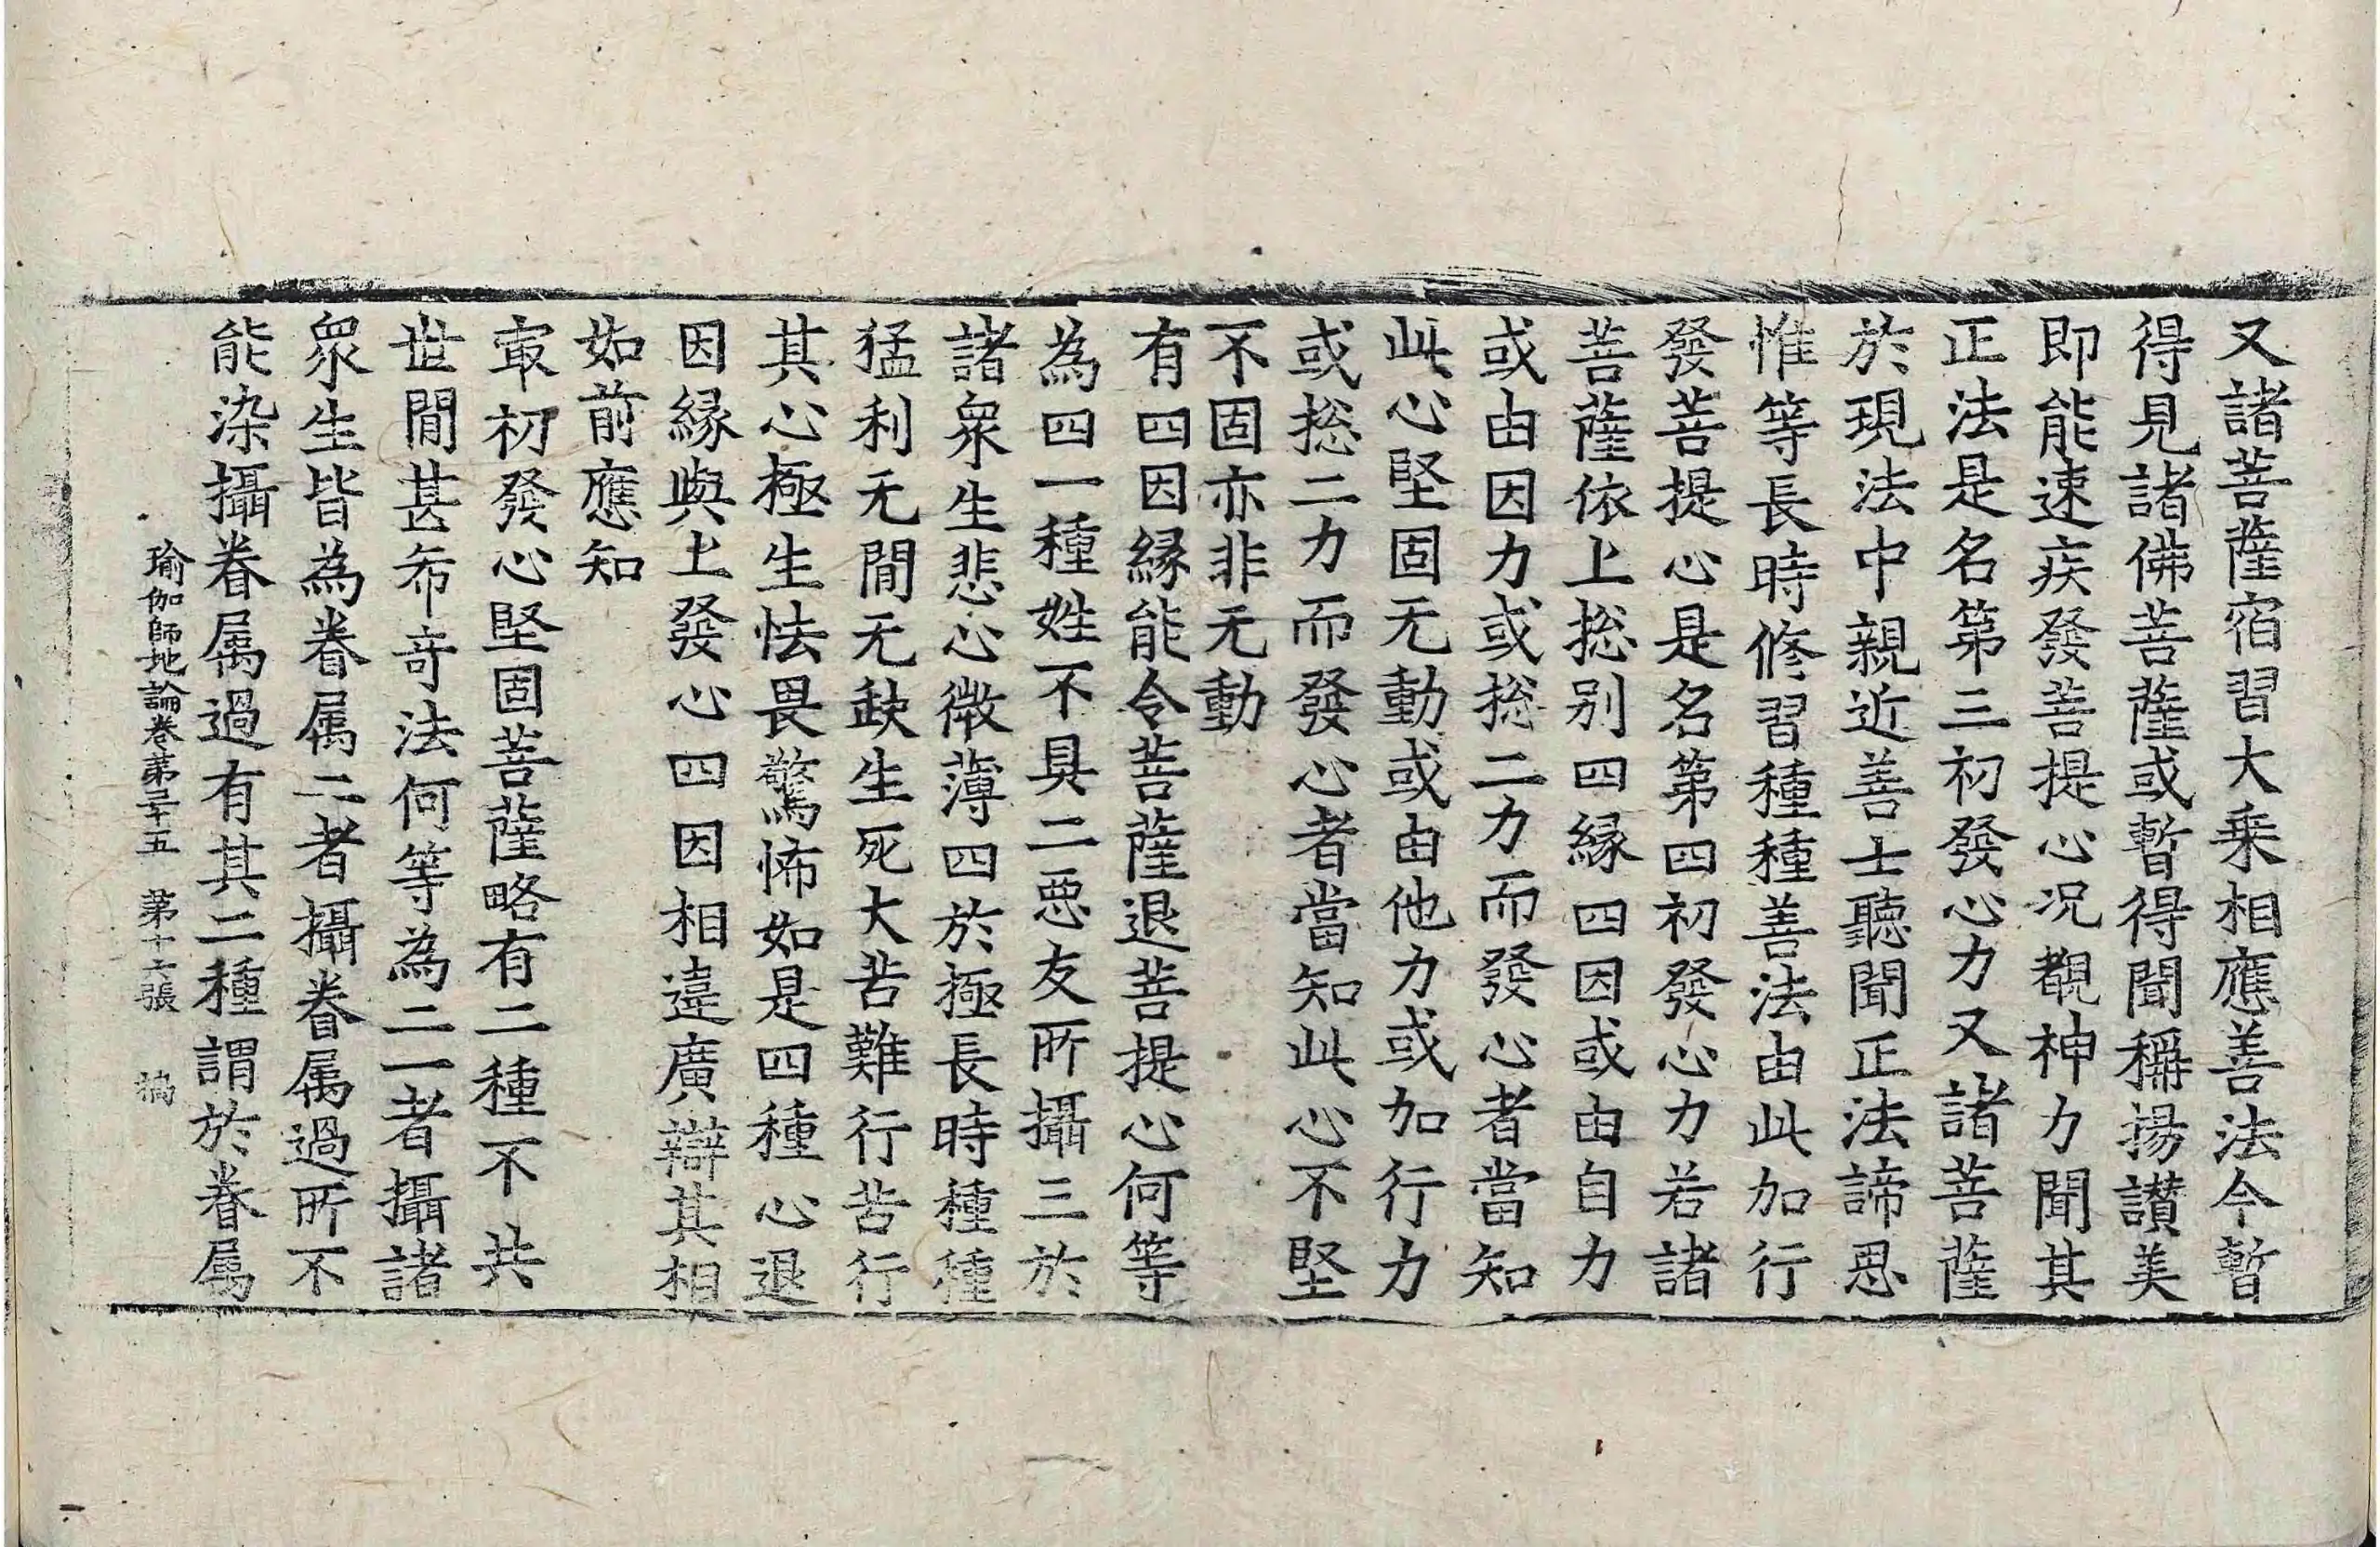 又諸菩薩宿習大乗相應善法今暫
得見諸佛菩薩或暫得聞稱揚讃美
即能速疾發菩提心况覩神力聞其
正法是名第三初發心力又諸菩薩
於現法中親近善士聽聞正法諦思
惟等長時修習種種善法由此加行
發菩提心是名第四初發心力若諸
菩薩依上揔别四縁四因或由自力
或由因力或揔二力而發心者當知
此心堅固无動或由他力或加行力
或揔二力而發心者當知此心不堅
不固亦非无動
有四因縁能令菩薩退菩提心何等
為四一種姓不具二惡友所攝三於
諸衆生悲心微薄四於極長時種種
猛利无間无缺生死大苦難行苦行
其心極生怯畏驚怖如是四種心退
因縁與上發心四因相違廣辯其相
如前應知
㝡初發心堅固菩薩略有二種不共
世間甚希奇法何等為二一者攝諸
衆生皆為眷属二者攝眷属過所不
能染攝眷属過有其二種謂於眷属
瑜伽師地論卷第三十五 第十六張